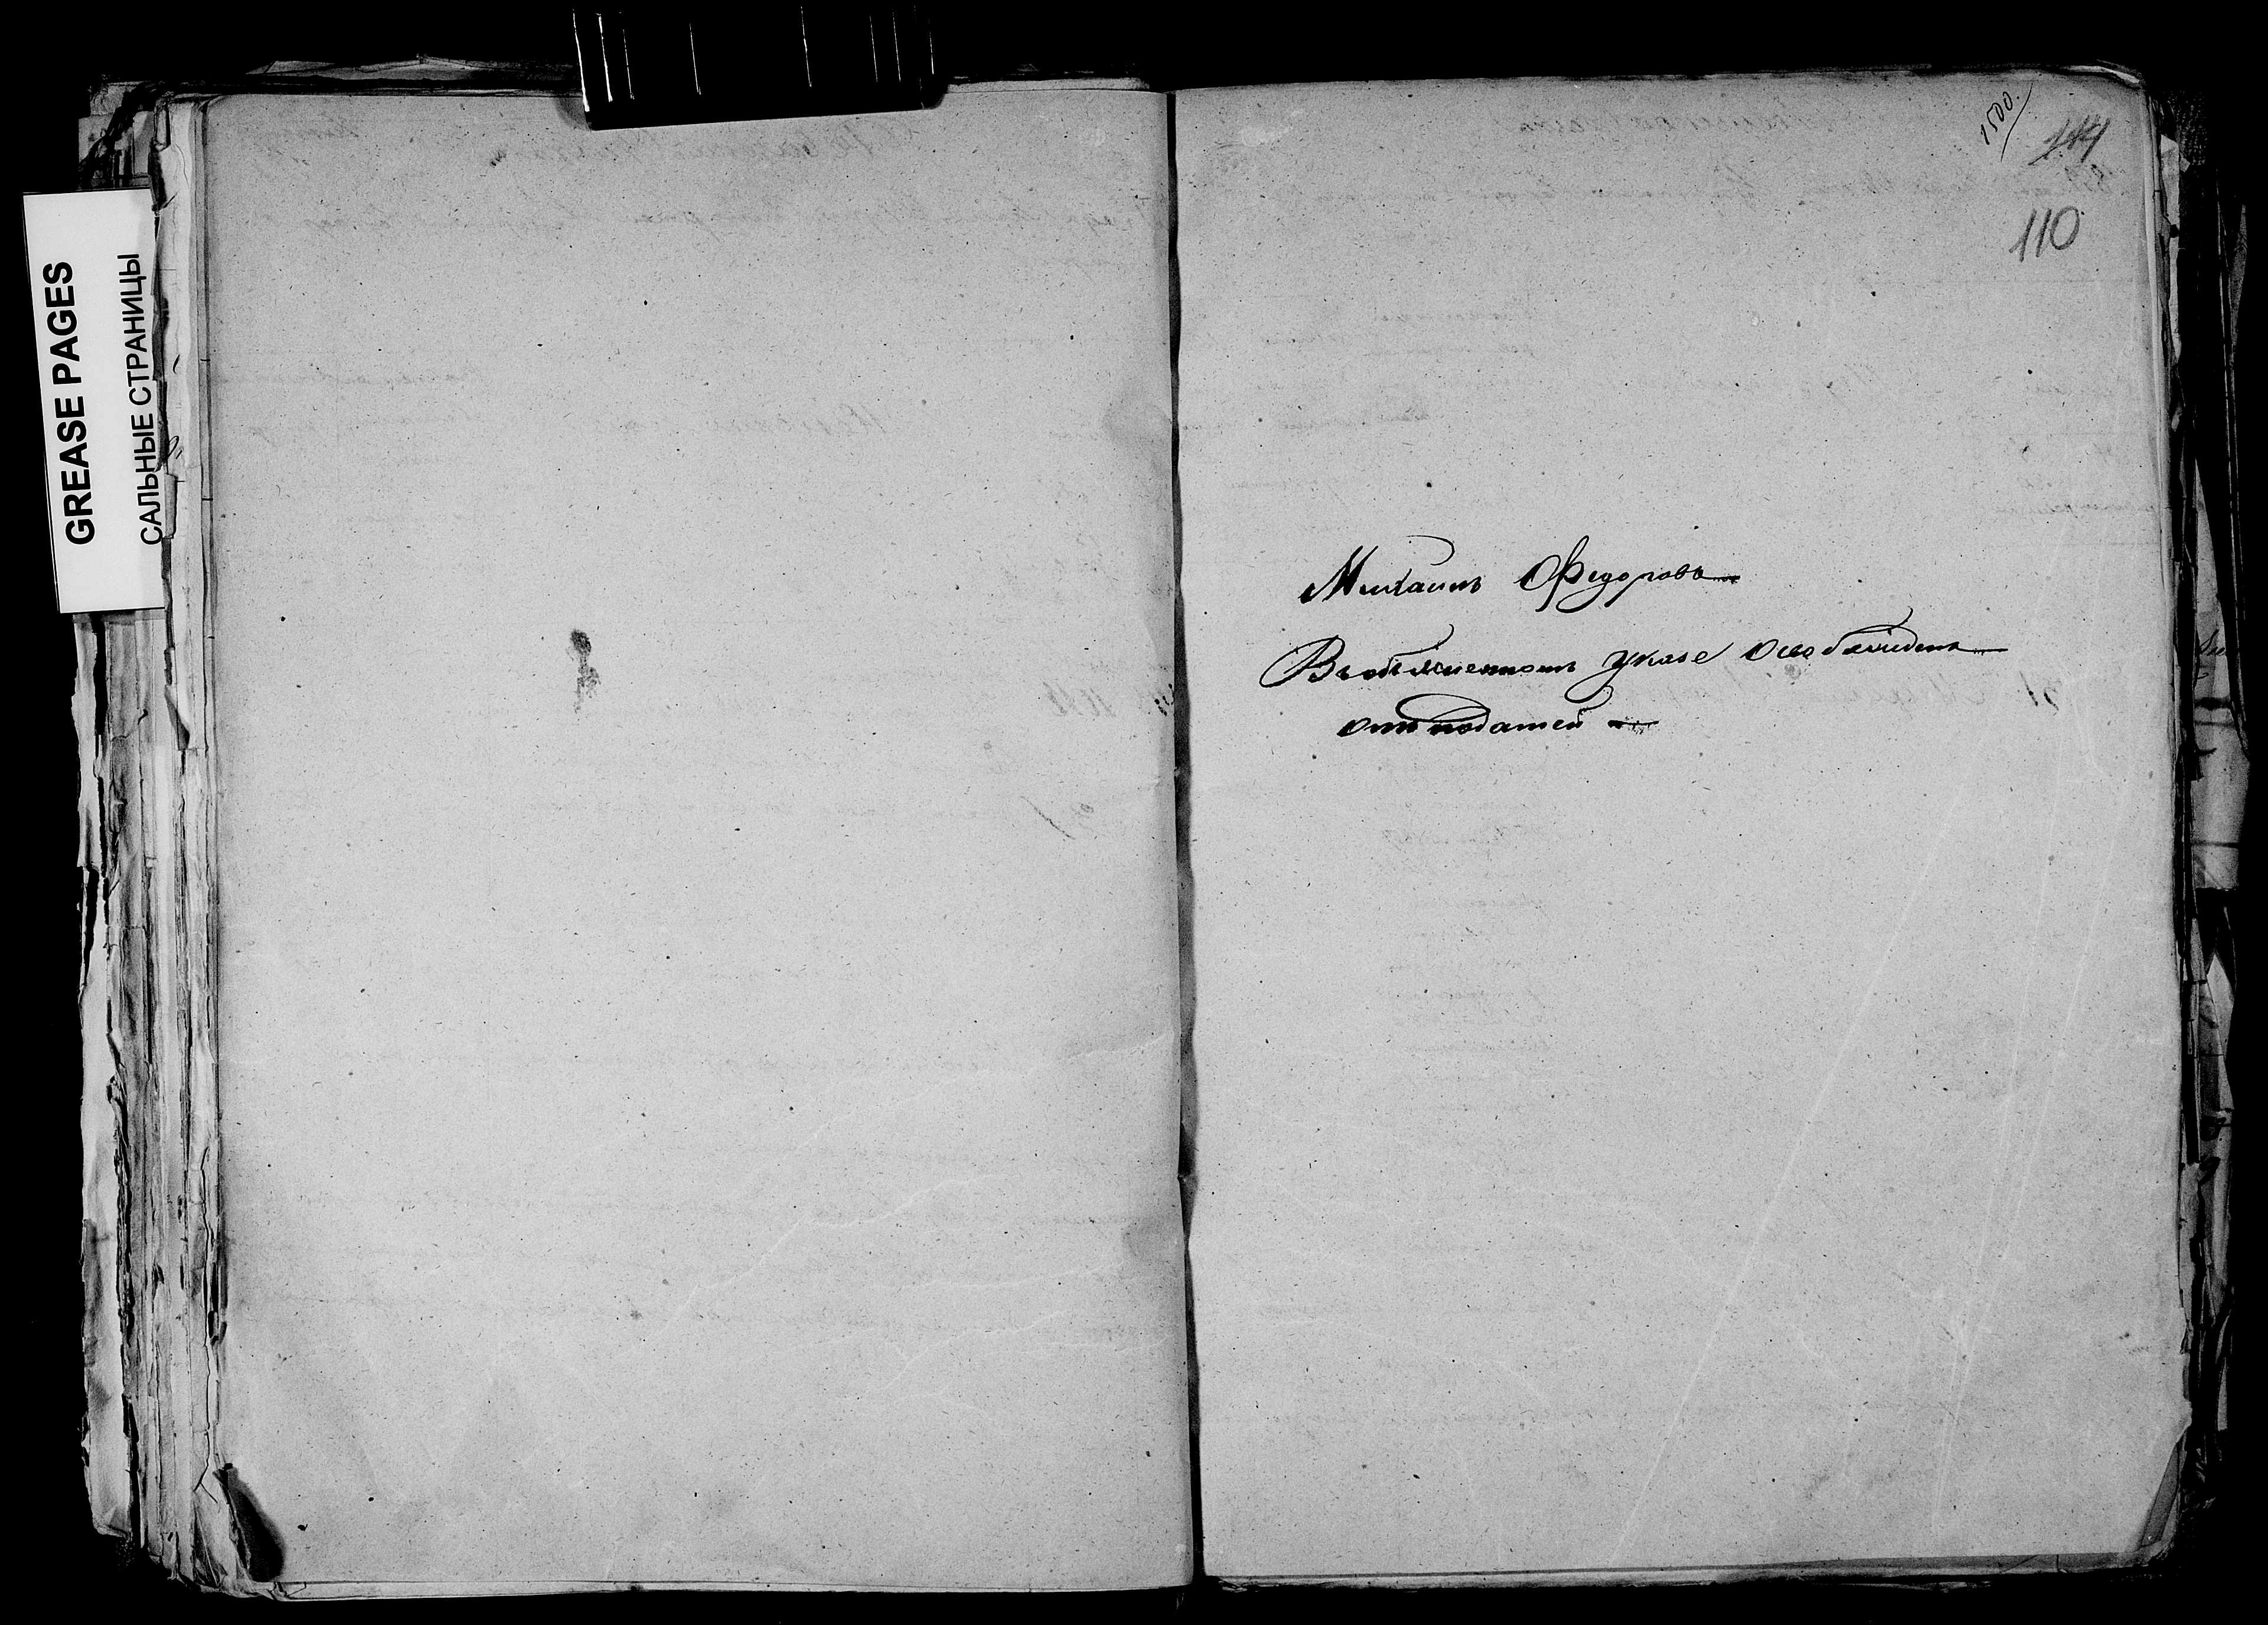 GREASE PAGES
САЛЬНЫЕ СТРАНИЦЫ
1500.
144
110
Михаилъ Федоровъ
Въ объясненномъ указе освобожденъ
отъ податей